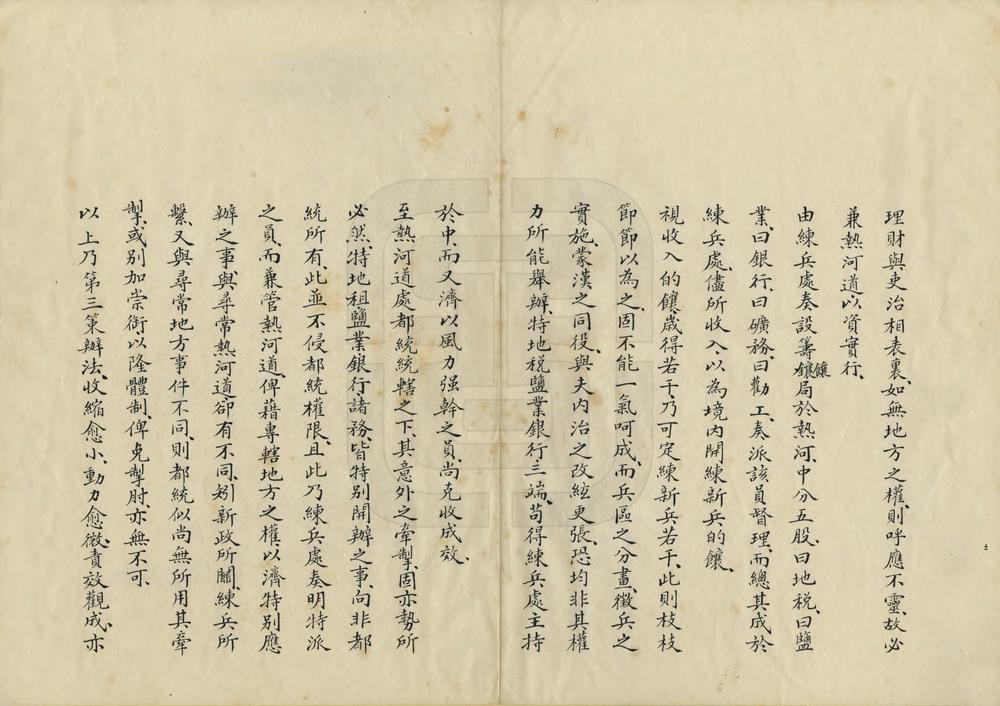 理財與吏治相表裏、如無地方之權、則呼應不靈、故必
兼熱河道以資實行、
由練兵處奏設籌饟局於熱河中分五股、曰地税、曰鹽
業、曰銀行、曰礦務、曰勸工、奏派該員督理、而總其成於
練兵處、儘所收入、以為境内開練新兵的饟、
視收入的饟、歲得若干、乃可定練新兵若干、此則枝枝
節節以為之、固不能一氣呵成、而兵區之分畫、徵兵之
實施、蒙漢之同役、與夫内治之改絃更張、恐均非其權
力所能舉辦、特地税鹽業銀行三端、苟得練兵處主持
於中、而又濟以風力强幹之員、尚克收成效、
至熱河道處都統統轄之下、其意外之牽掣、固亦勢所
必然、特地租鹽業銀行諸務、皆特別開辦之事、向非都
統所有、此並不侵都統權限、且此乃練兵處奏明特派
之員、而兼管熱河道、俾藉專轄地方之權、以濟特別應
辦之事、與尋常熱河道、卻有不同、矧新政所關、練兵所
繫、又與尋常地方事件不同、則都統似尚無所用其牽
掣、或别加崇銜、以隆體制、俾免掣肘、亦無不可、
以上乃第三策辦法、收縮愈小、動力愈微、責效觀成、亦